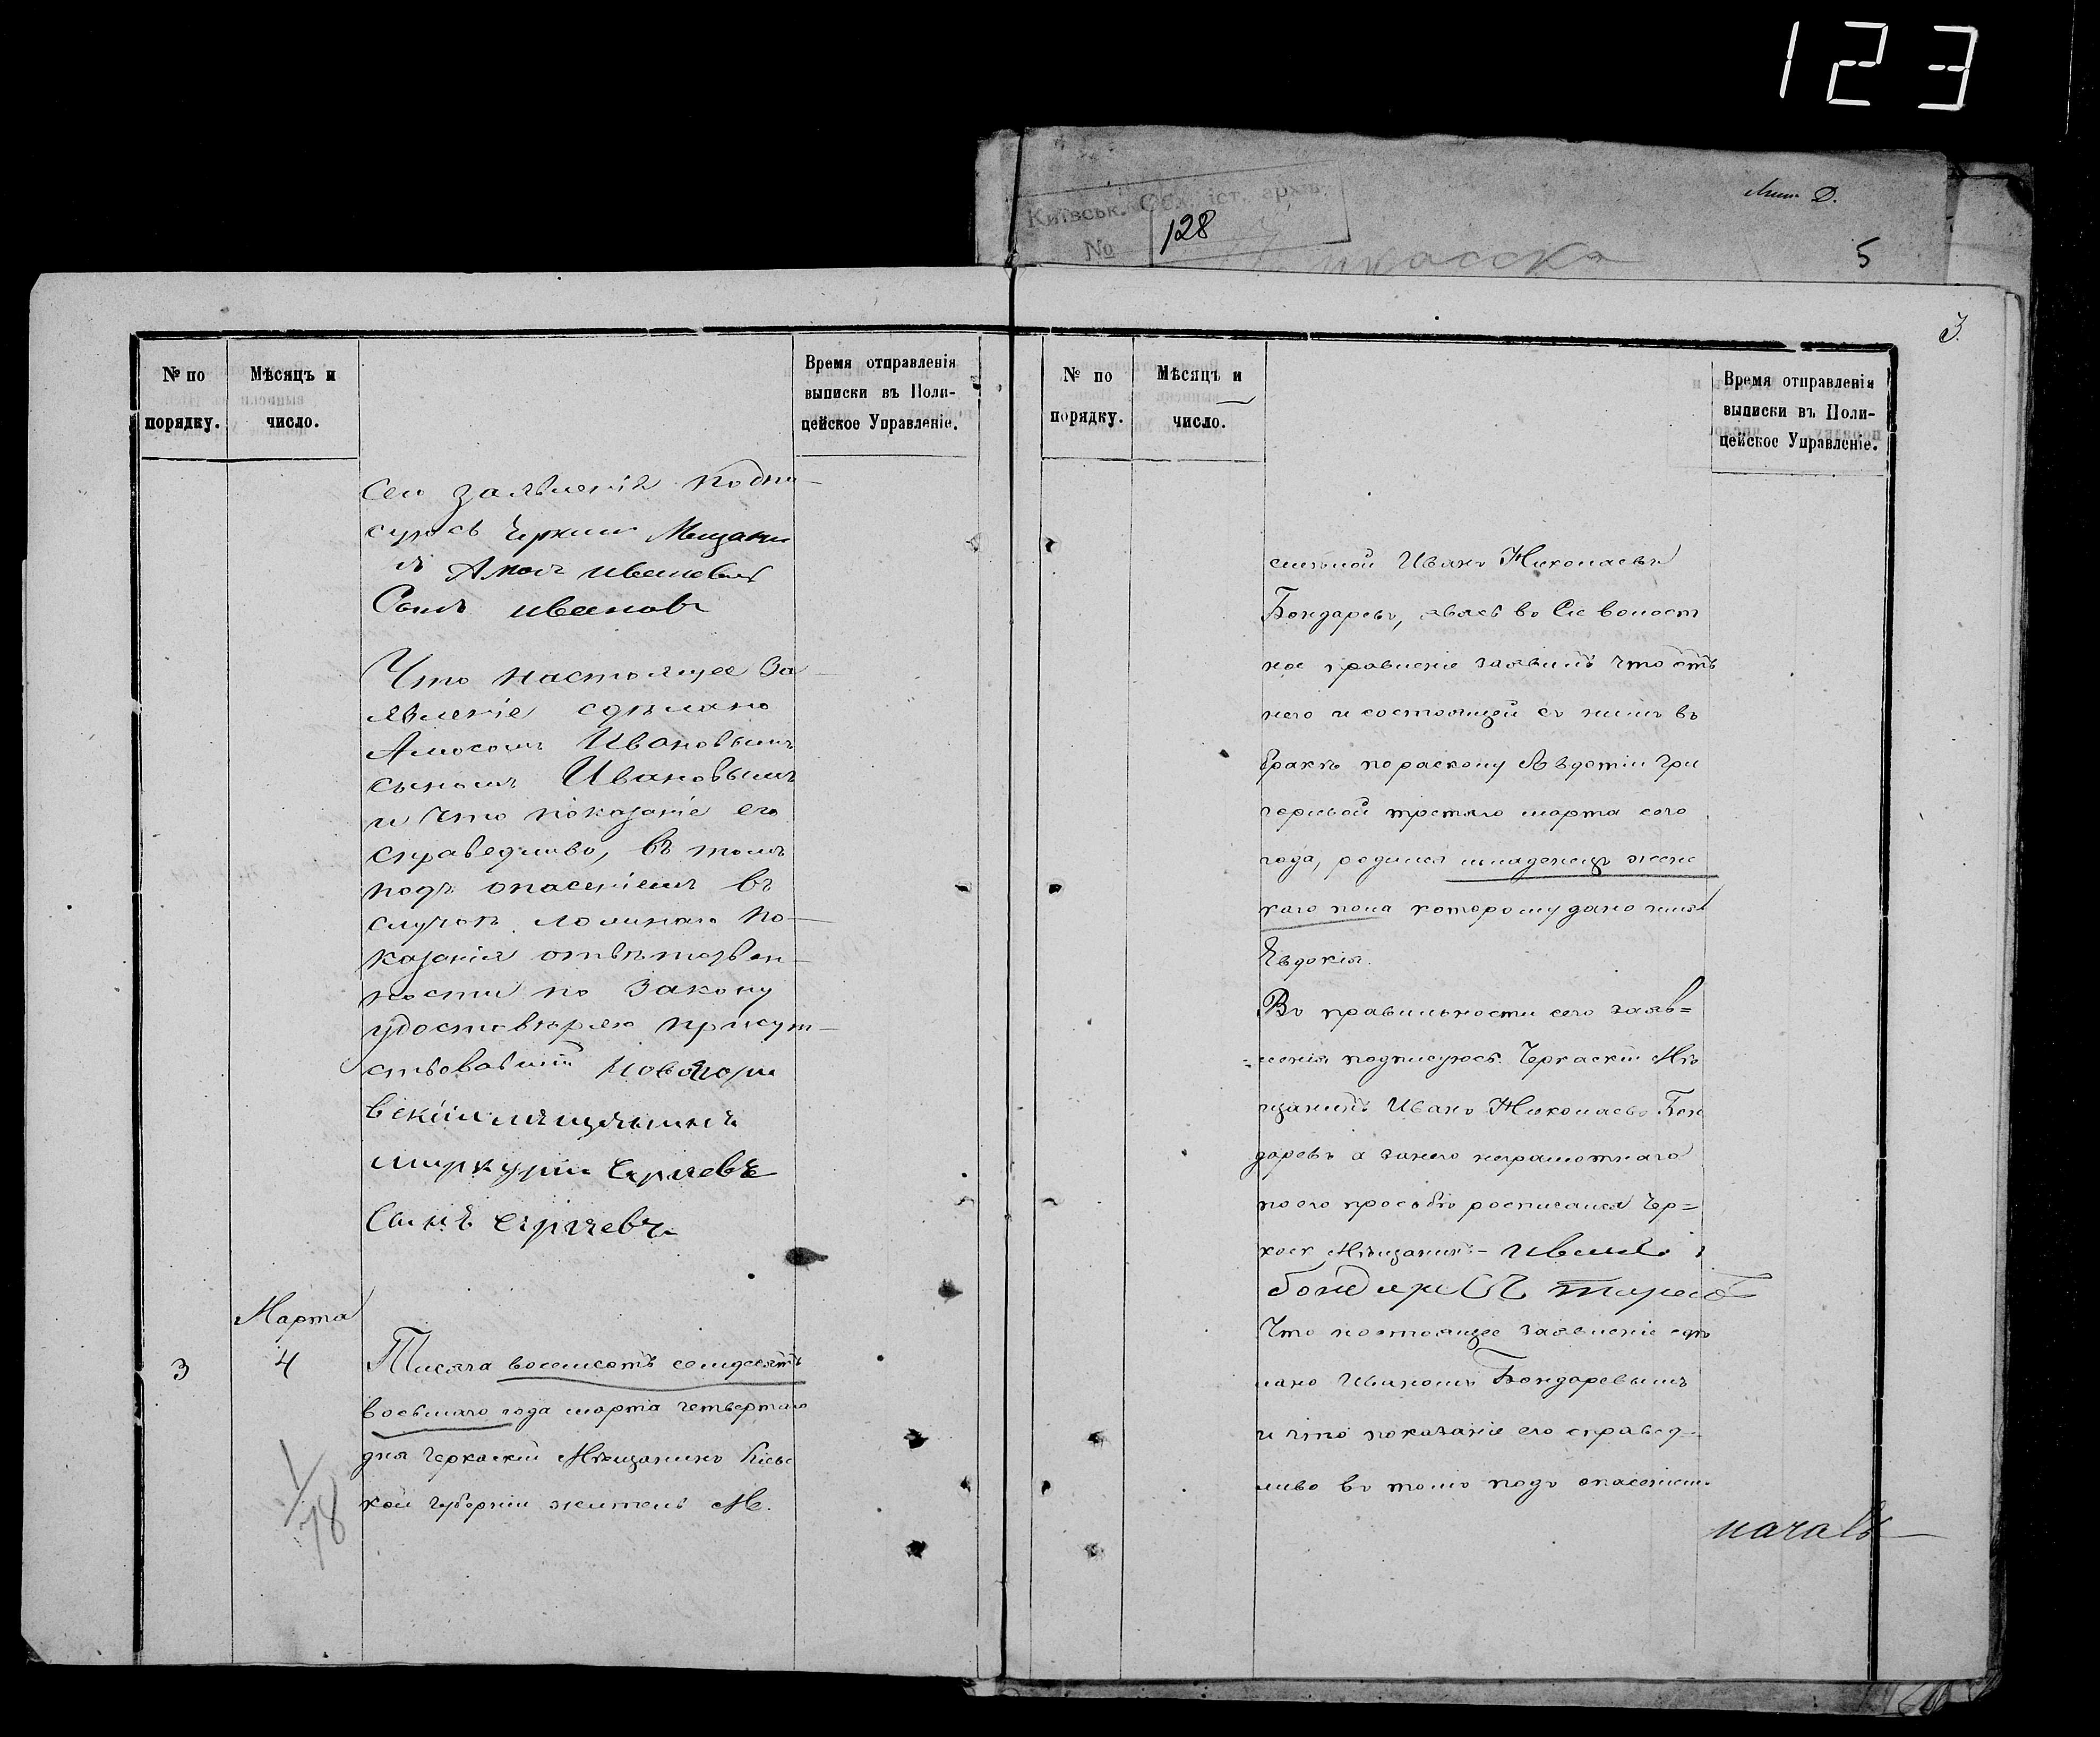 123
Київськ. Обл. іст. архів
№ 128
Лит. Д.
5
3.
№ по порядку.
Мѣсяцъ и число.
Время отправленія
выписки въ Поли-
цейское Управленіе.
сего заявленія подпи-
суюсь Черкас Мещани
Амосъ Ивановъ
Сынъ Ивановъ
Что настоящее За-
явленіе сдѣлано
Амосомъ Ивановымъ
сыномъ Ивановымъ
и что показаніе его
справедливо, въ томъ
подъ опасеніемъ въ
случаѣ ложнаго по-
казанія отвѣтствен-
ности по Закону
удостовѣряю присут-
ствовавшій
мѣщанинъ
Меркурій Сергѣевъ
Сынъ Сергѣевъ
Марта
3
4
Тисяча восемсотъ семдесятъ
восьмаго года марта четвертаго
дня Черкаскій Мѣщанинъ Кіевс
кой губерніи житель М.
1/78
№ по порядку.
Мѣсяцъ и число.
Время отправленія
выписки въ Поли-
цейское Управленіе.
Иванъ Николаевъ
Бондаревъ, явясь въ Сіе волост
ное правленіе заявилъ что отъ
него и состоящей съ нимъ въ
бракѣ по раскону Авдотіи Гри
горьевой третяго марта сего
года, родился младенецъ женс
каго пола которому дано имя
Евдокія.
Въ правильности сего заяв=
ленія подписуюсь. Черкаскій Мѣ
щанинъ Иванъ Николаевъ Бон
даревъ а занего неграмотнаго
по его просьбѣ росписался Чер=
каск Мѣщанинъ - Иванъ
бондаревъ
Что настоящее заявленіе сдѣ
лано Иваномъ Бондаревымъ
и что показаніе его справед-
ливо въ томъ подъ опасеніемъ